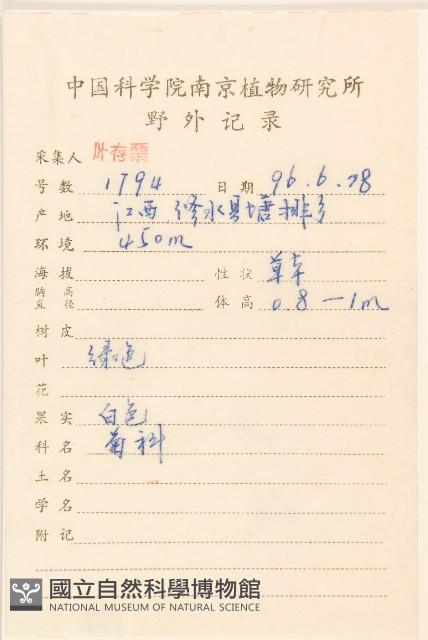 中国科学院南京植物研究所
野外记录
采集人 叶存粟
号数 1794 日期 96.6.28
产地 江西修水县塘排乡
环境 450m
海拔 性状 草本
胸高直径 体高 0.8—1m
树皮
叶 绿色
花
果实 白色
科名 菊科
土名
学名
附记
國立自然科學博物館
NATIONAL MUSEUM OF NATURAL SCIENCE